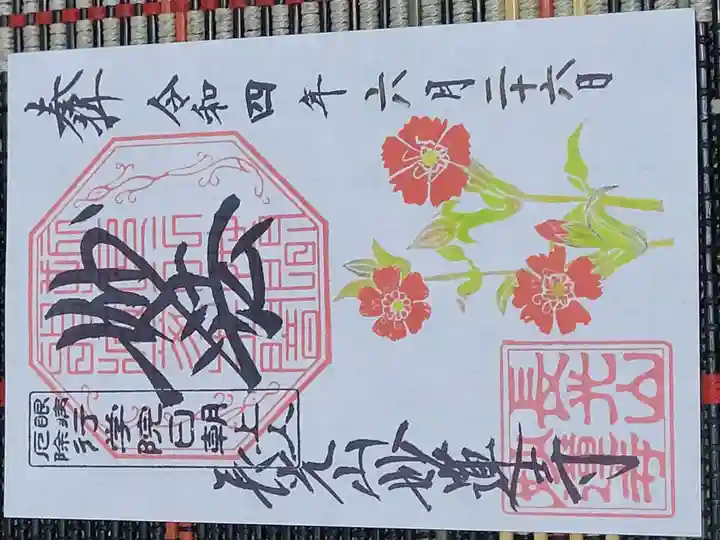 奉 令和四年六月二十六日
妙法
眼病
厄除
行学院日朝上人
長光山妙蓮寺
長光山
妙蓮寺